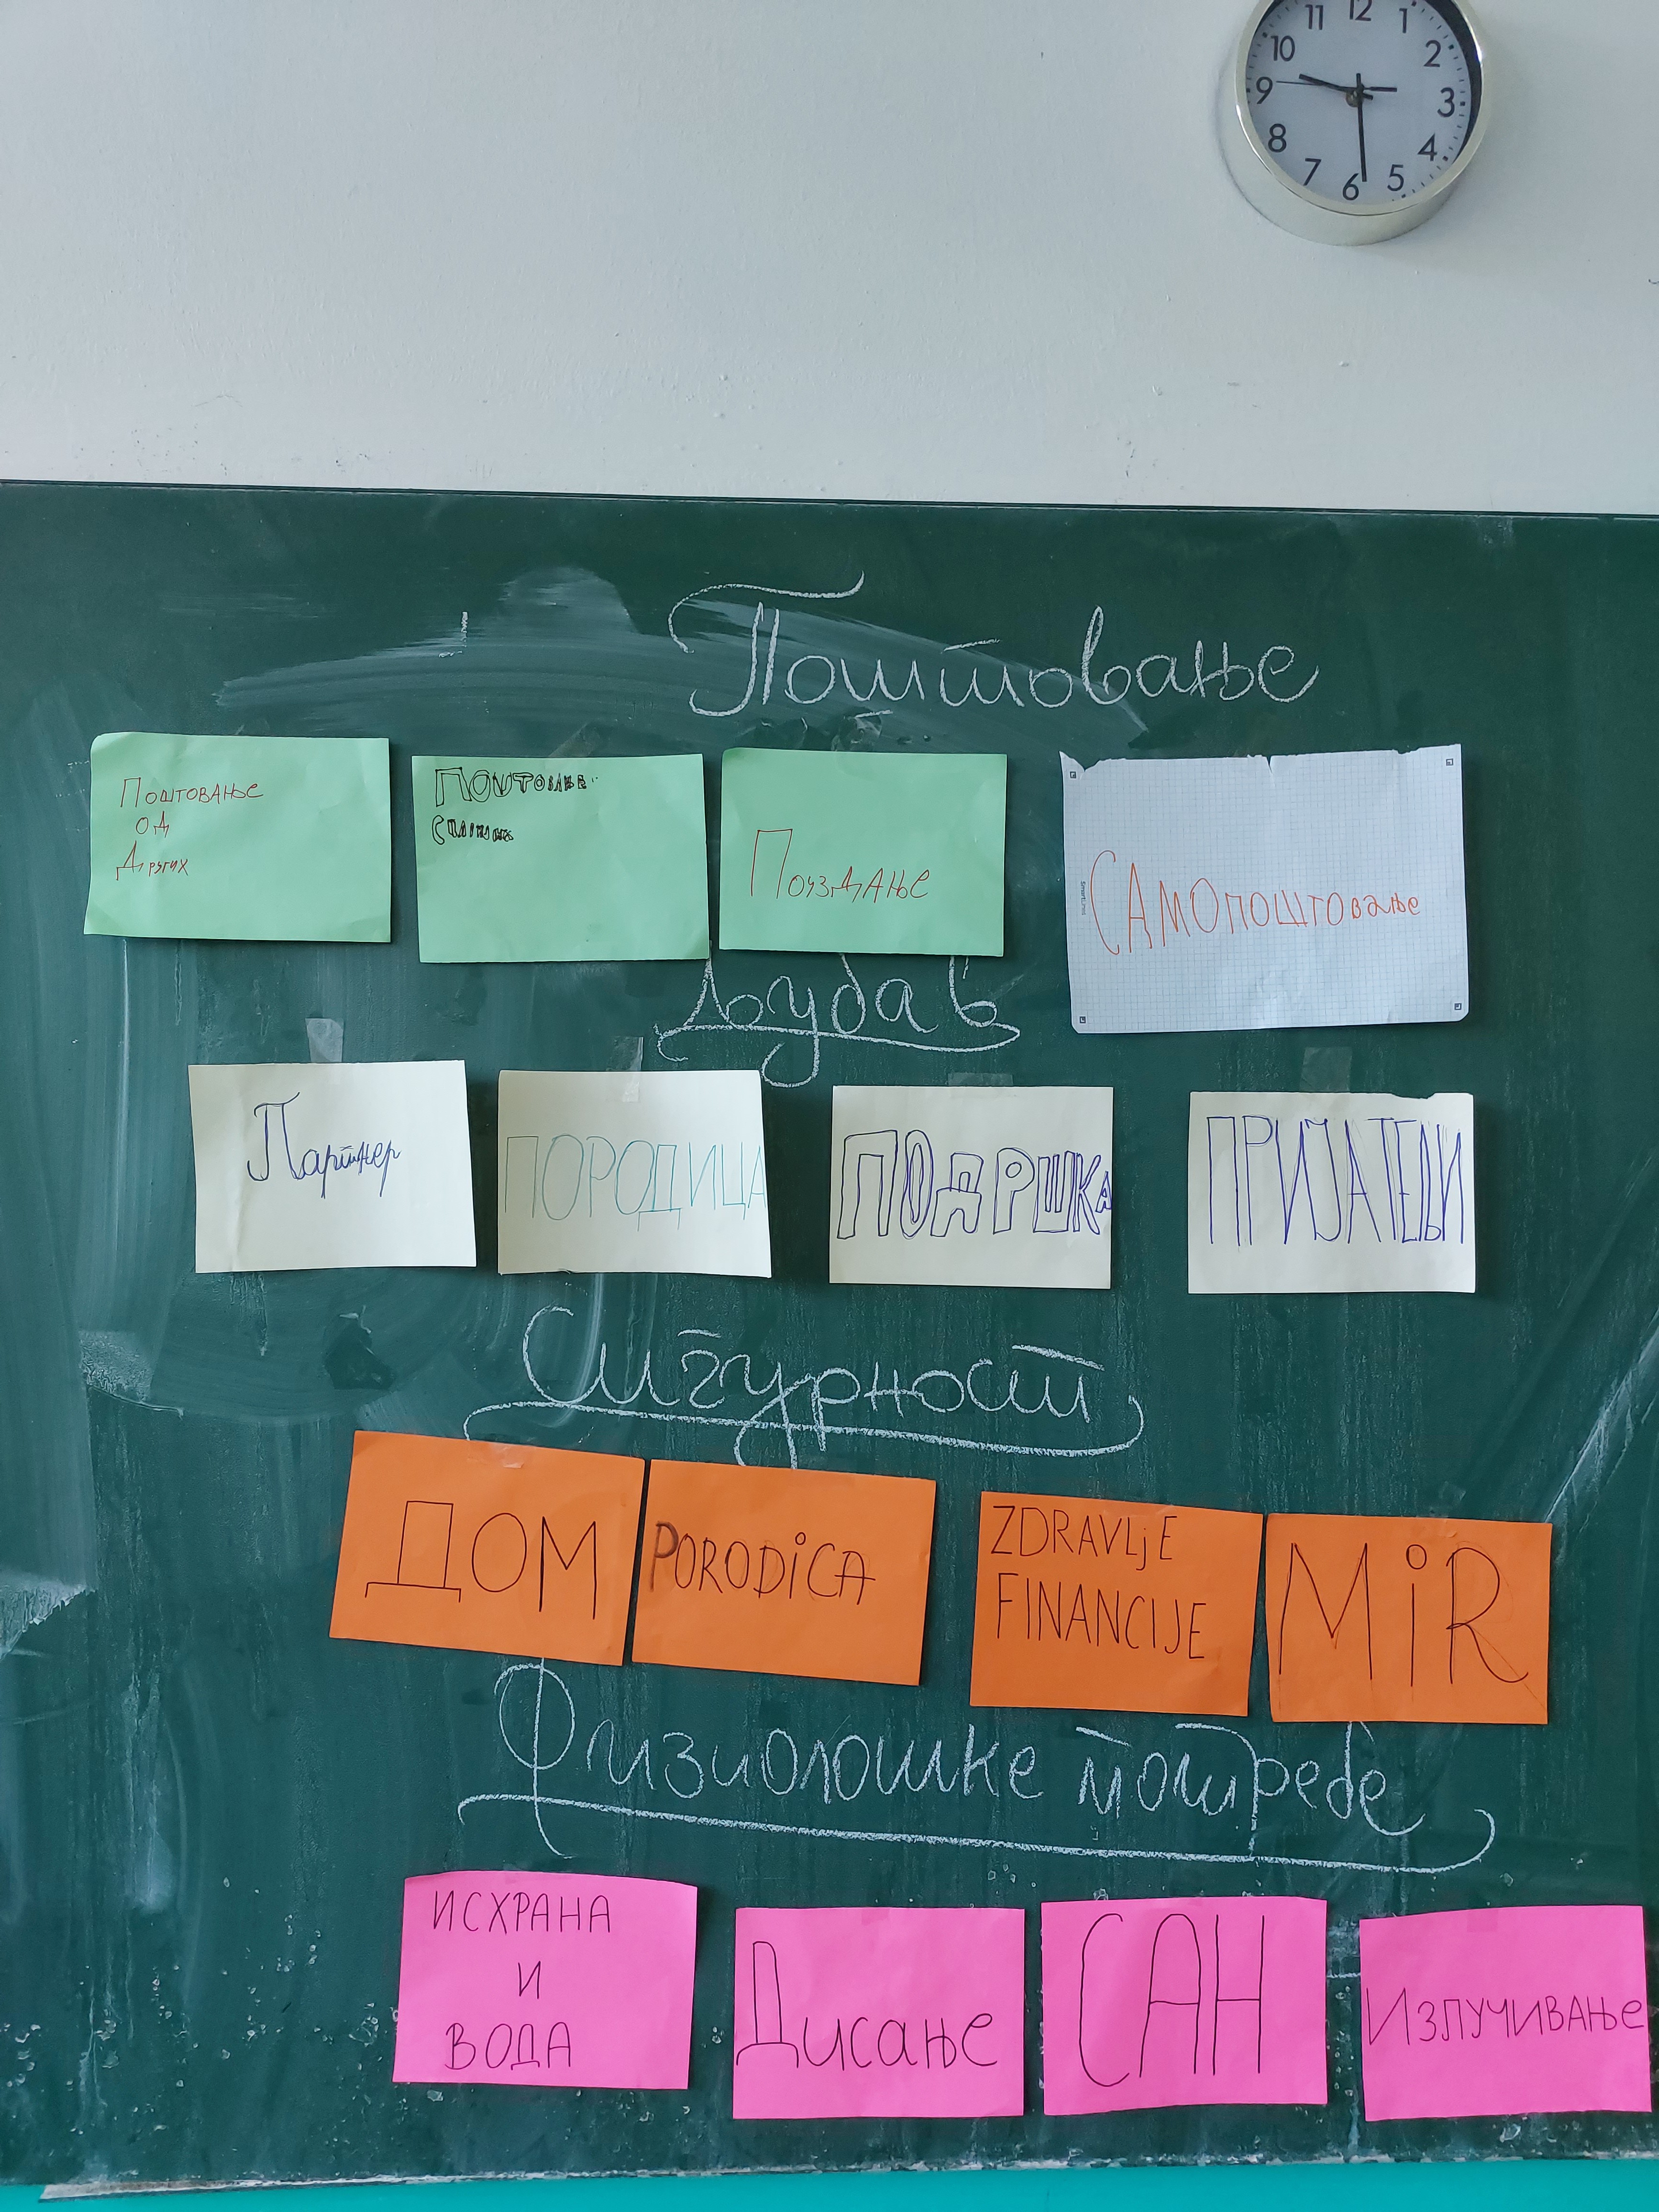 11 12 1
10 2
9 3
8 4
7 6 5
Поштовање
Поштовање
од
Других
Поуздање
Самопоштовање
Љубав
Партнер
ПОРОДИЦА
ПОДРШКА
ПРИЈАТЕЉИ
Сигурност
ДОМ
PORODiCA
ZDRAVLjE
FINANCIJE
MiR
Физиолошке потребе
ИСХРАНА
И
ВОДА
Дисање
САН
Излучивање